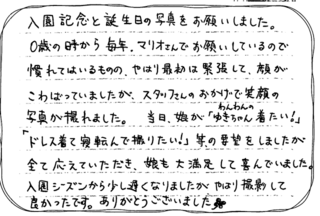 入園記念と誕生日の写真をお願いしました。
0歳の時から毎年、マリオさんでお願いしているので
慣れてはいるものの、やはり最初は緊張して、顔が
こわばっていましたが、スタッフさんのおかげで笑顔の
写真が撮れました。 当日、娘が「ゆきちゃん着たい!」
わんわんの
「ドレス着て寝転んで撮りたい!」等の要望をしましたが
全て応えていただき、娘も大満足して喜んでいました。
入園シーズンから少し遅くなりましたがやはり撮影して
良かったです。ありがとうございました